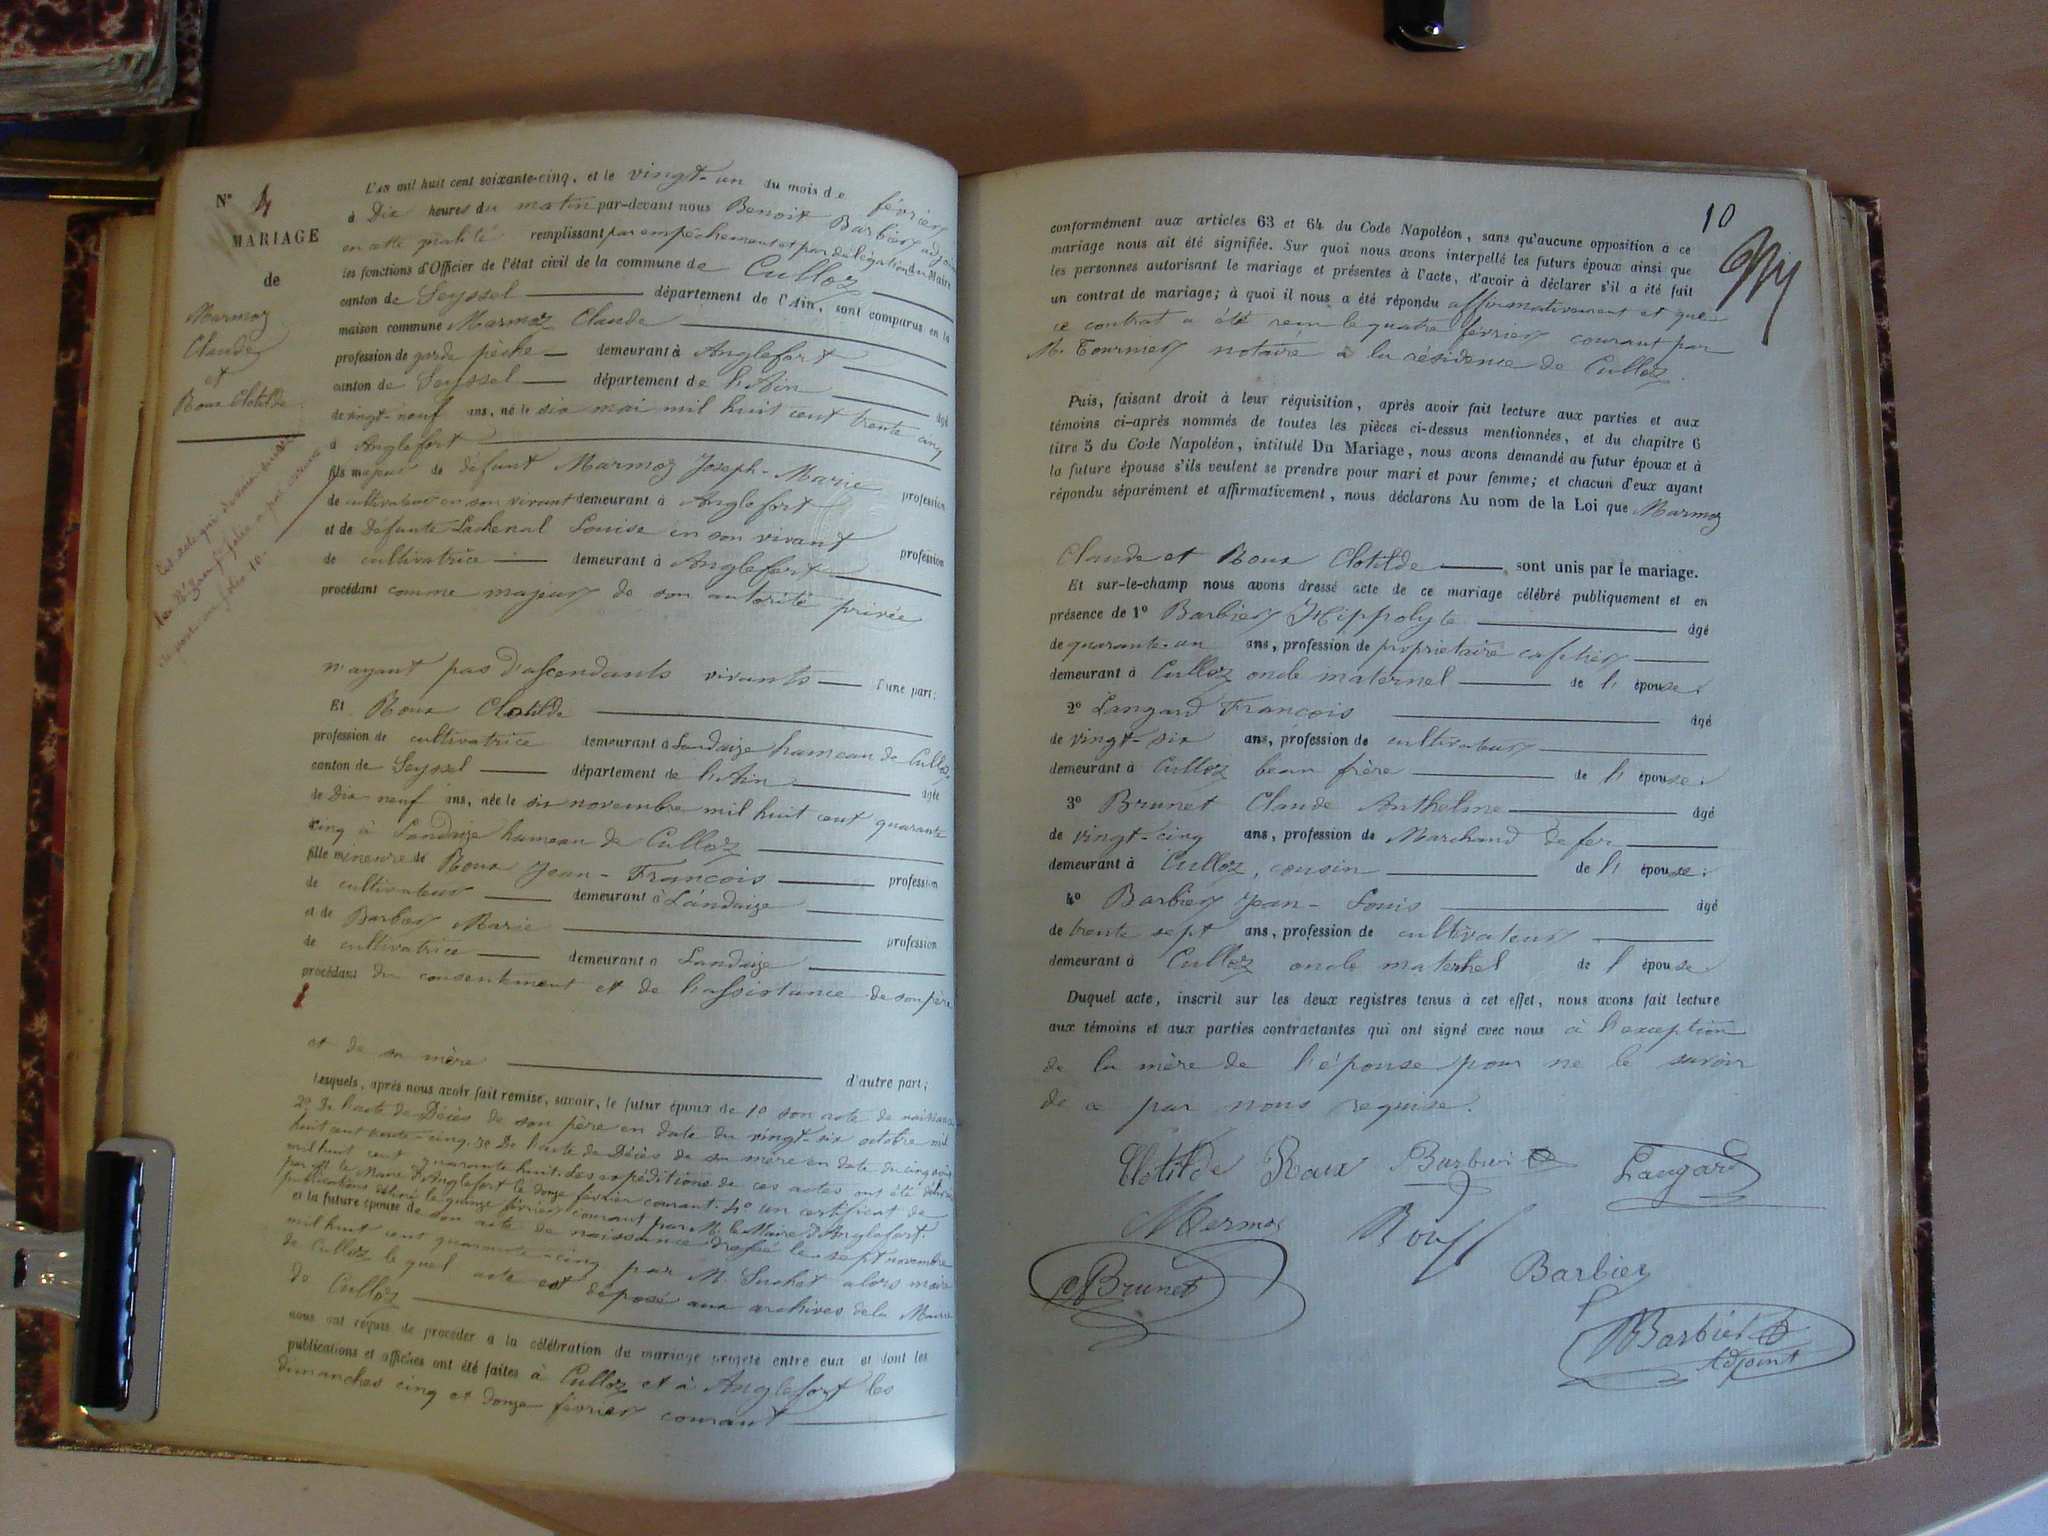 N° 4
MARIAGE
de
Marmoz
Claude
et
Roux Clotilde
L'an mil huit cent soixante-cinq, et le vingt-un du mois de février
à Dix heures du matin par-devant nous Benoit Barbier adjoint
en cette qualité remplissant par empêchement et par délégation du Maire
les fonctions d'Officier de l'état civil de la commune de Culloz
canton de Seyssel département de l'Ain, sont comparus en la
maison commune Marmoz Claude
profession de garde pêche demeurant à Anglefort
canton de Seyssel département de l'Ain âgé
de vingt-neuf ans, né le six mai mil huit cent trente cinq
à Anglefort
fils majeur de défunt Marmoz Joseph-Marie profession
de cultivateur en son vivant demeurant à Anglefort
et de Defunte Lachenal Louise en son vivant profession
de cultivatrice demeurant à Anglefort
procédant comme majeur de son autorité privée
n'ayant pas d'ascendants vivants d'une part;
Et Roux Clotilde
profession de cultivatrice demeurant à Landaize hameau de Culloz
canton de Seyssel département de l'Ain âgée
de Dix neuf ans, née le six novembre mil huit cent quarante
cinq à Landaize hameau de Culloz
fille mineure de Roux Jean-François profession
de cultivateur demeurant à Landaize
et de Barbier Marie profession
de cultivatrice demeurant à Landaize
procédant du consentement et de l'assistance de son père
et de sa mère d'autre part;
Lesquels, après nous avoir fait remise, savoir, le futur époux de 1° son acte de naissance
2° De l'acte de Décès de son père en date du vingt-six octobre mil
huit cent trente-cinq. 3° De l'acte de Décès de sa mère en date du cinq
mil huit cent quarante huit. Les expéditions de ces actes ont été délivrées
par M. le Maire d'Anglefort le douze février courant. 4° un certificat de
publications délivré le quinze février courant par M. le Maire d'Anglefort.
et la future épouse de son acte de naissance dressé le sept novembre
mil huit cent quarante-cinq par M. Suchet alors maire
de Culloz le quel acte est déposé aux archives de la Mairie
de Culloz
nous ont requis de procéder à la célébration du mariage projeté entre eux et dont les
publications et affiches ont été faites à Culloz et à Anglefort les
dimanches cinq et douze février courant
10
conformément aux articles 63 et 64 du Code Napoléon, sans qu'aucune opposition a ce
mariage nous ait été signifiée. Sur quoi nous avons interpellé les futurs époux ainsi que
les personnes autorisant le mariage et présentes à l'acte, d'avoir à déclarer s'il a été fait
un contrat de mariage; à quoi il nous a été répondu affirmativement et que
ce contrat a été reçu le quatre février courant par
M. Tournier notaire à la résidence de Culloz.
Puis, faisant droit à leur réquisition, après avoir fait lecture aux parties et aux
témoins ci-après nommés de toutes les pièces ci-dessus mentionnées, et du chapitre 6
titre 5 du Code Napoléon, intitulé Du Mariage, nous avons demandé au futur époux et à
la future épouse s'ils veulent se prendre pour mari et pour femme; et chacun d'eux ayant
répondu séparément et affirmativement, nous déclarons Au nom de la Loi que Marmoz
Claude et Roux Clotilde sont unis par le mariage.
Et sur-le-champ nous avons dressé acte de ce mariage célébré publiquement et en
présence de 1° Barbier Hippolyte âgé
de quarante-un ans, profession de propriétaire cafetier
demeurant à Culloz oncle maternel de l'épouse;
2° Langard François âgé
de vingt-six ans, profession de cultivateur
demeurant à Culloz beau frère de l'épouse;
3° Brunet Claude Anthelme âgé
de vingt-cinq ans, profession de Marchand de fer
demeurant à Culloz, cousin de l'épouse;
4° Barbier Jean-Louis âgé
de trente sept ans, profession de cultivateur
demeurant à Culloz oncle maternel de l'épouse
Duquel acte, inscrit sur les deux registres tenus à cet effet, nous avons fait lecture
aux témoins et aux parties contractantes qui ont signé avec nous à l'exception
de la mère de l'épouse pour ne le savoir
de ce par nous requise.
Clotilde Roux Barbier Langard
Mermoz Roux
Brunet Barbier
Barbier
Adjoint